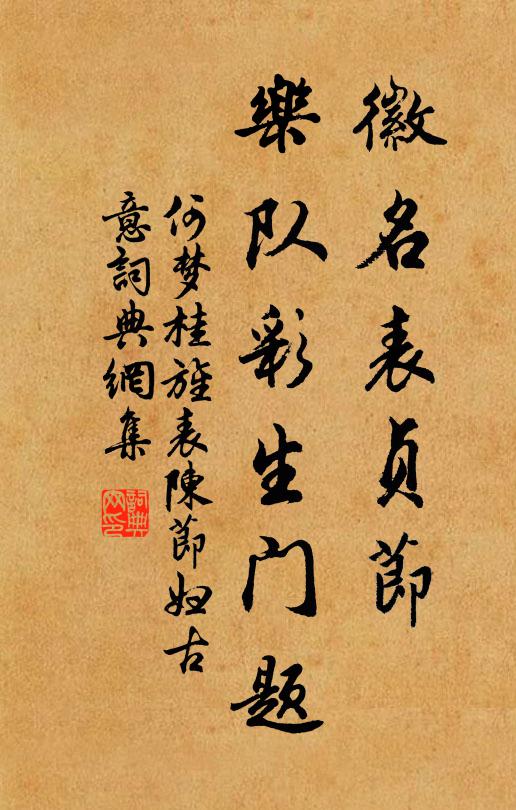 徽名表貞節
樂队彩生门题
何梦桂旌表陳節妇古
意詞典網集
詞典
网印